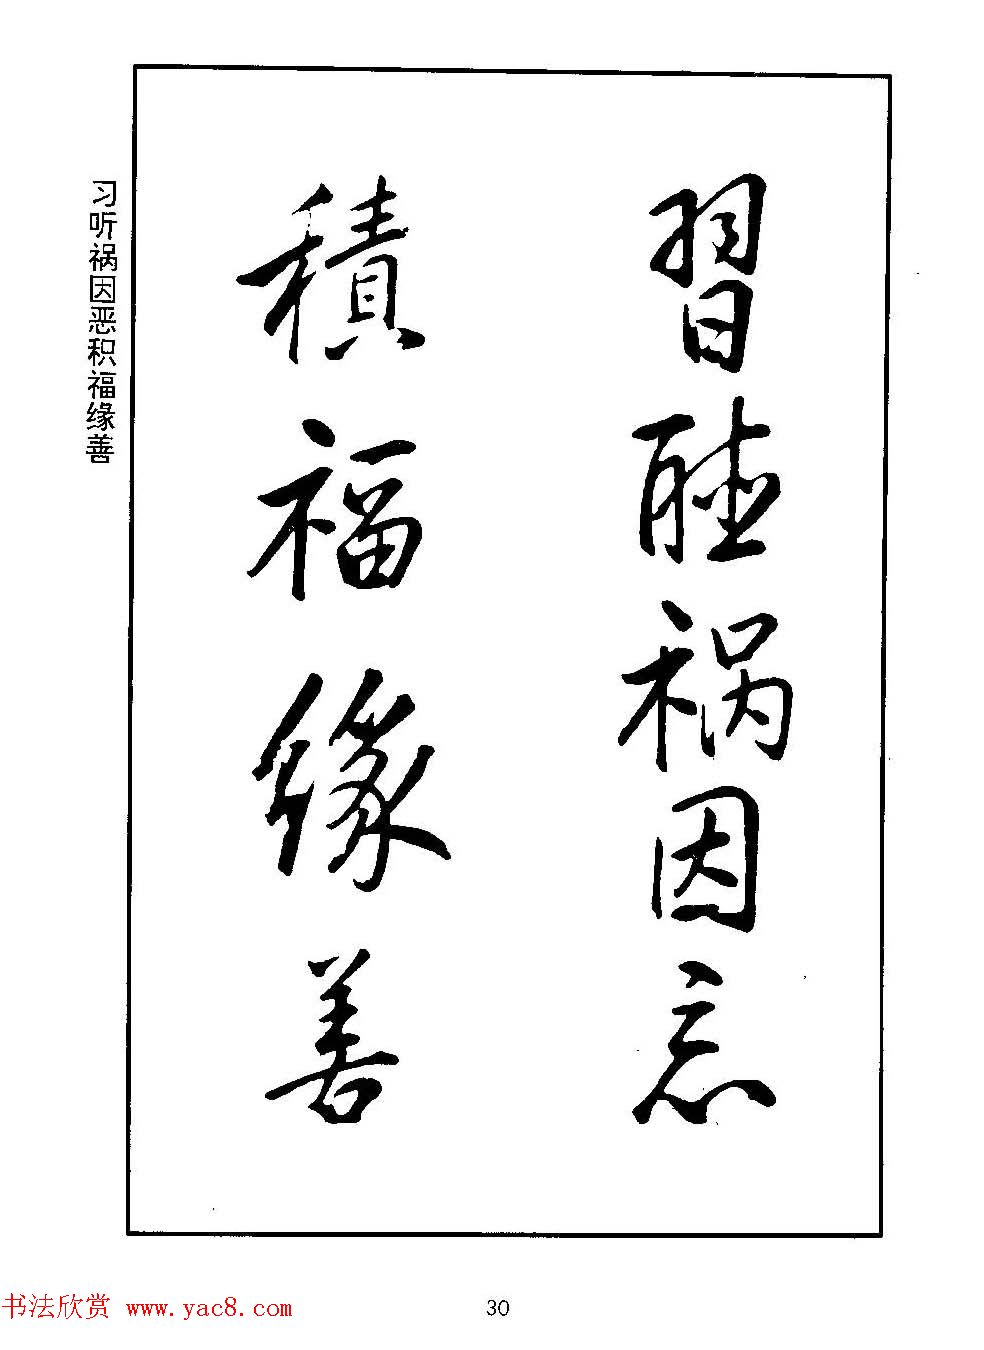 習聽禍因惡
積福緣善
习听祸因恶积福缘善
书法欣赏 www.yac8.com
30